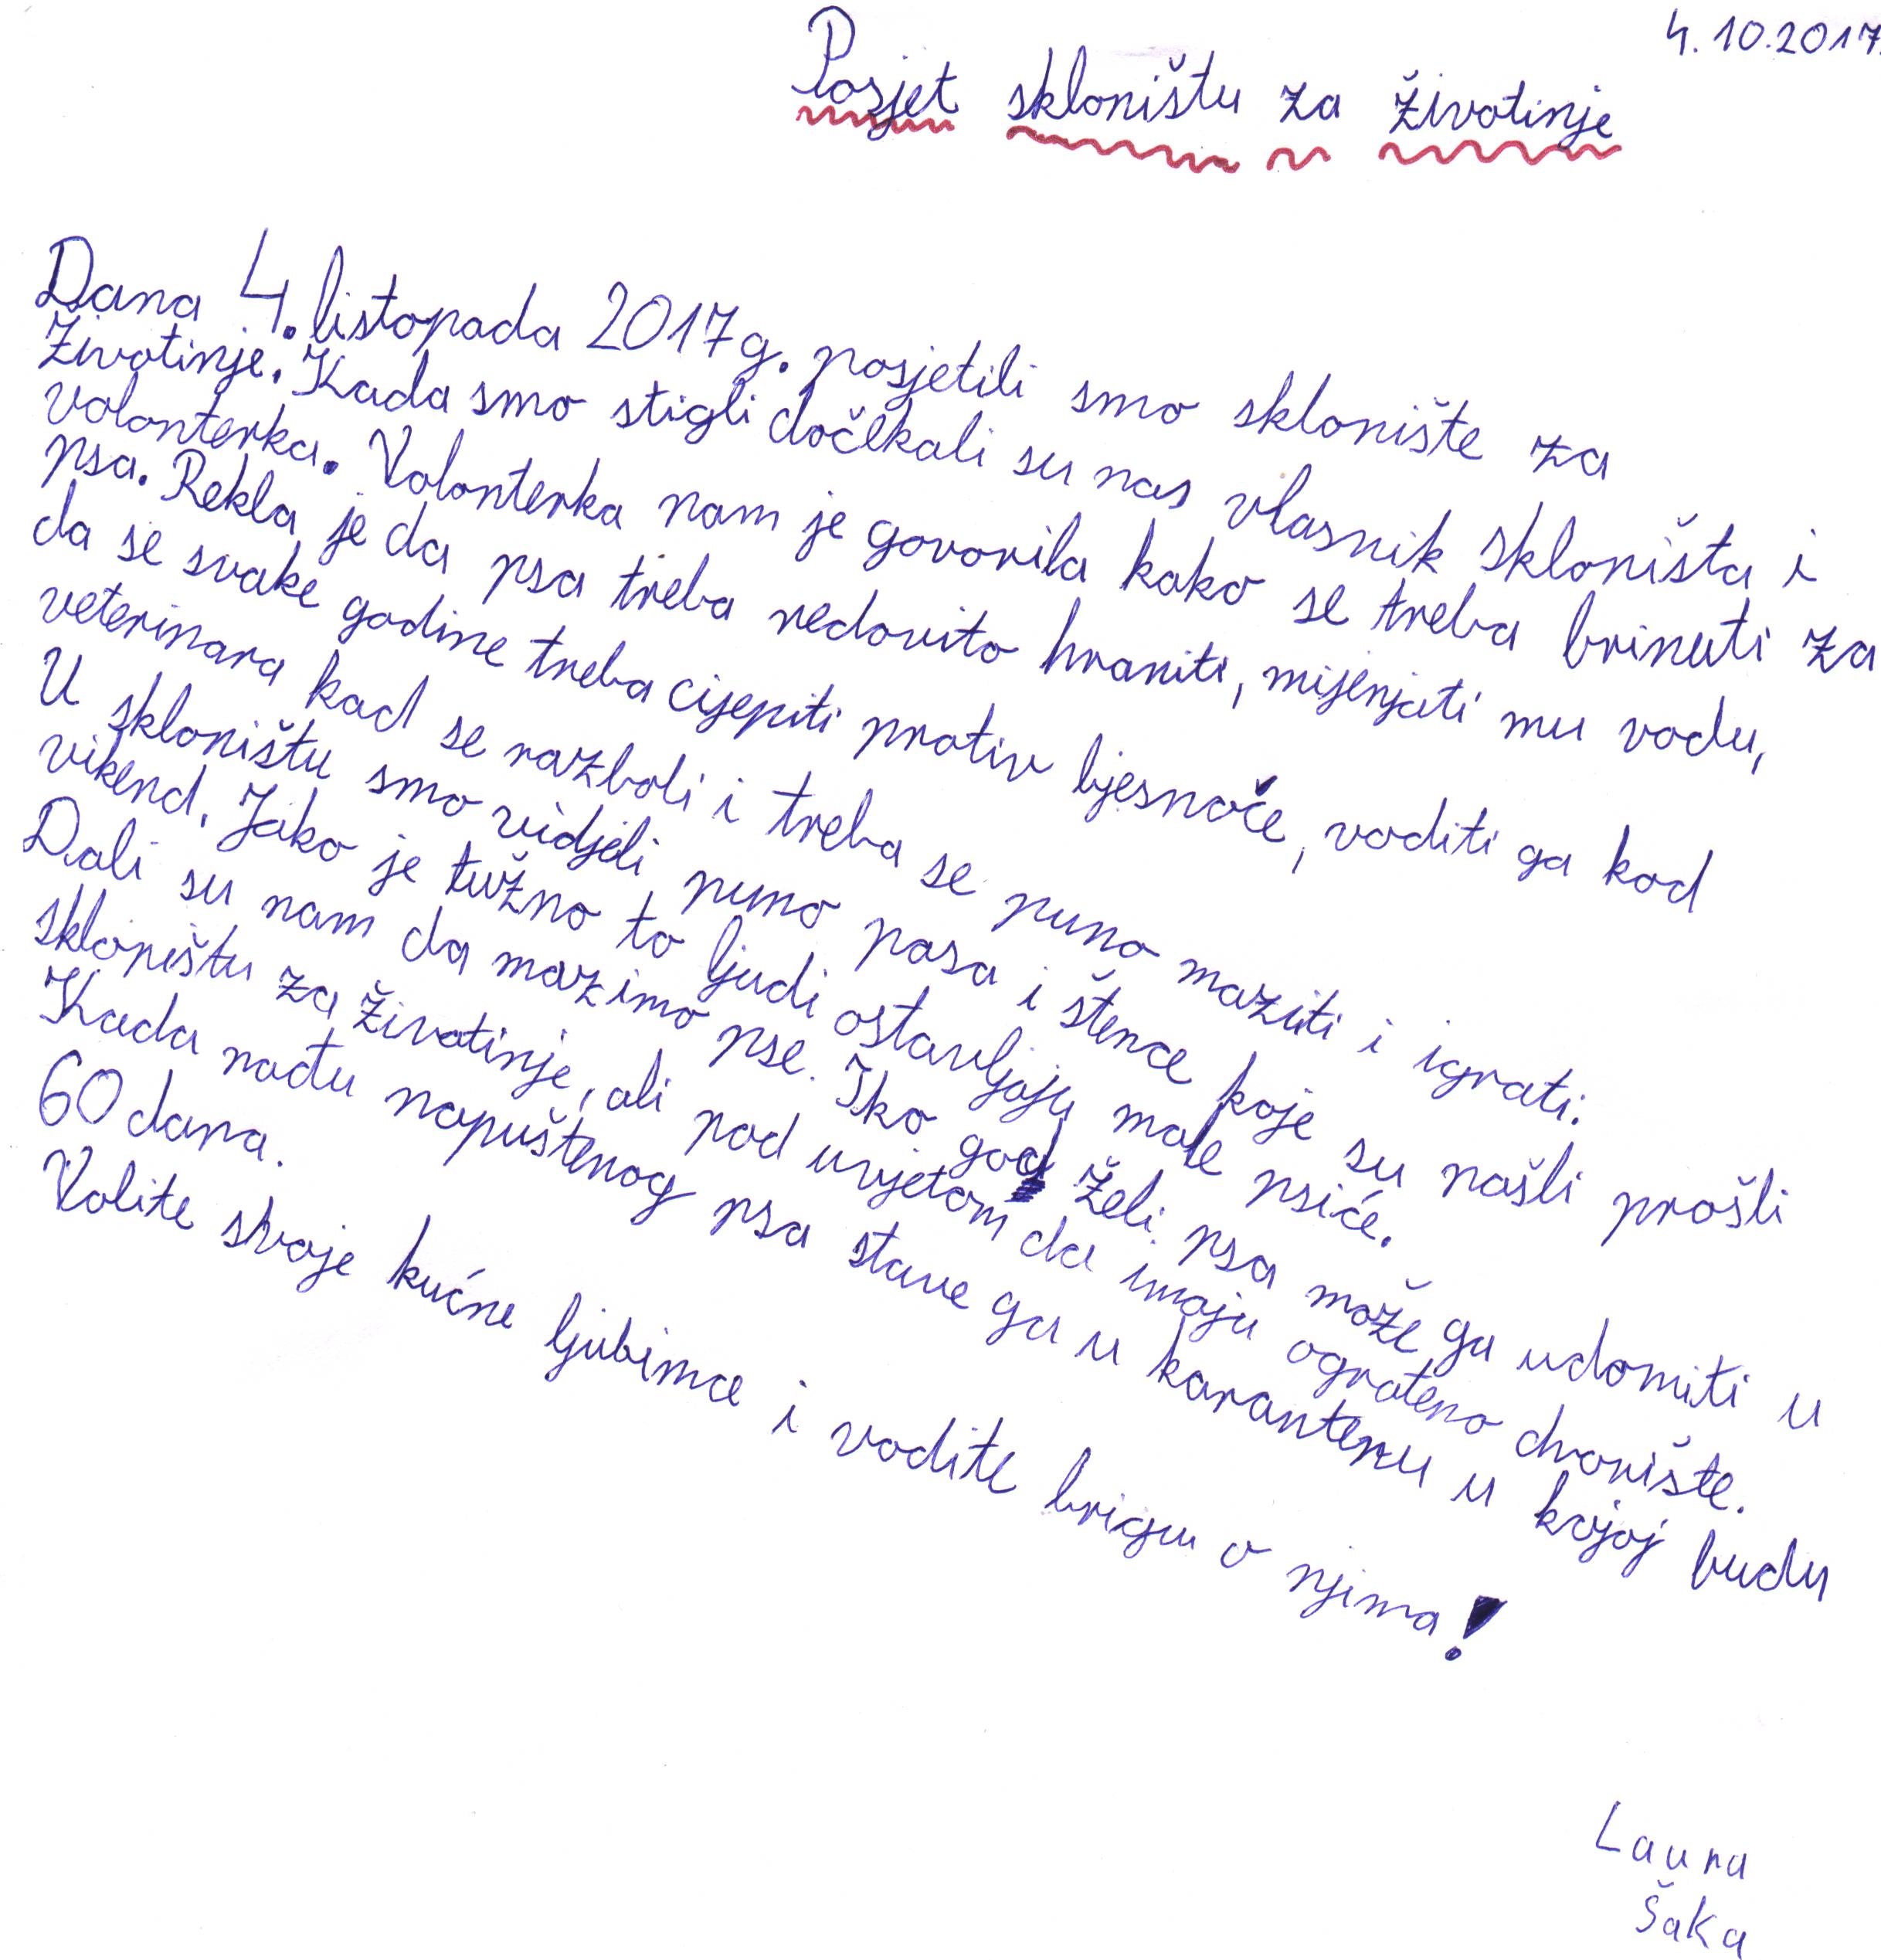 4.10.2017.
Posjet skloništu za životinje
Dana 4. listopada 2017g. posjetili smo sklonište za
životinje. Kada smo stigli dočekali su nas vlasnik skloništa i
volonterka. Volonterka nam je govorila kako se treba brinuti za
psa. Rekla je da psa treba redovito hraniti, mijenjati mu vodu,
da se svake godine treba cijepiti protiv bjesnoče, voditi ga kod
veterinara kad se razboli i treba se puno maziti i igrati.
U skloništu smo vidjeli puno pasa i štence koje su našli prošli
vikend. Jako je tužno to ljudi ostavljaju male psiće.
Dali su nam da mazimo pse. Tko god želi psa može ga udomiti u
skloništu za životinje, ali pod uvjetom da imaju ograđeno dvorište.
Kada nađu napuštenog psa stave ga u karantenu u kojoj budu
60 dana.
Volite svoje kućne ljubimce i vodite brigu o njima!
Laura
Šaka